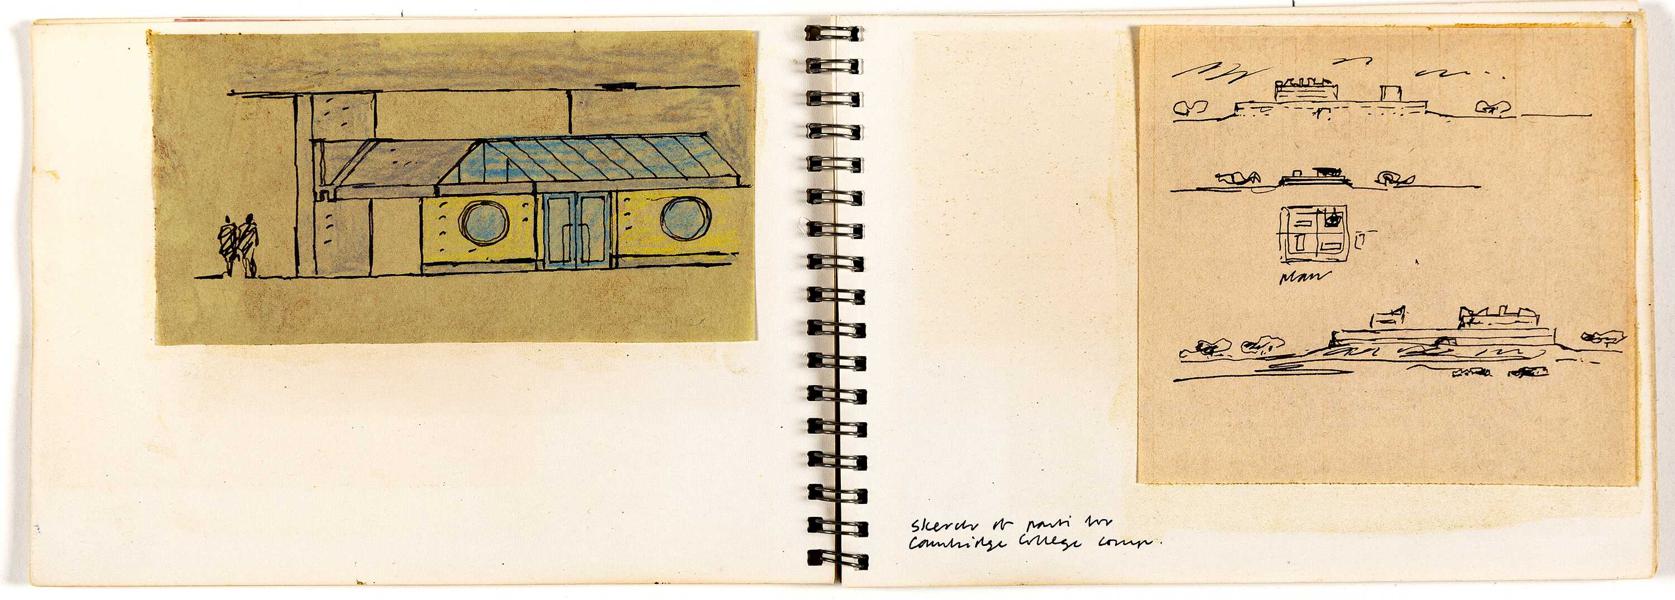 plan
Sketch of parti for
Cambridge College comp.